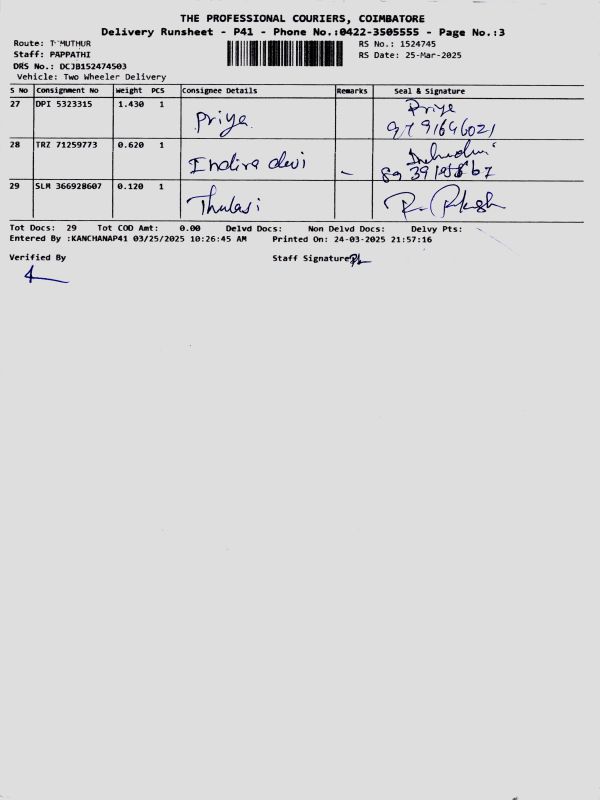 THE PROFESSIONAL COURIERS, COIMBATORE
Delivery Runsheet - P41 - Phone No.:0422-3505555 - Page No.:3
Route: T MUTHUR RS No.: 1524745
Staff: PAPPATHI RS Date: 25-Mar-2025
DRS No.: DCJB152474503
Vehicle: Two Wheeler Delivery
S No Consignment No Weight PCS Consignee Details Remarks Seal & Signature
27 DPI 5323315 1.430 1 Priya Priya
9791646021
28 TRZ 71259773 0.620 1 Indira devi -
29 SLM 366928607 0.120 1 Thulasi
Tot Docs: 29 Tot COD Amt: 0.00 Delvd Docs: Non Delvd Docs: Delvy Pts:
Entered By :KANCHANAP41 03/25/2025 10:26:45 AM Printed On: 24-03-2025 21:57:16
Verified By Staff Signature